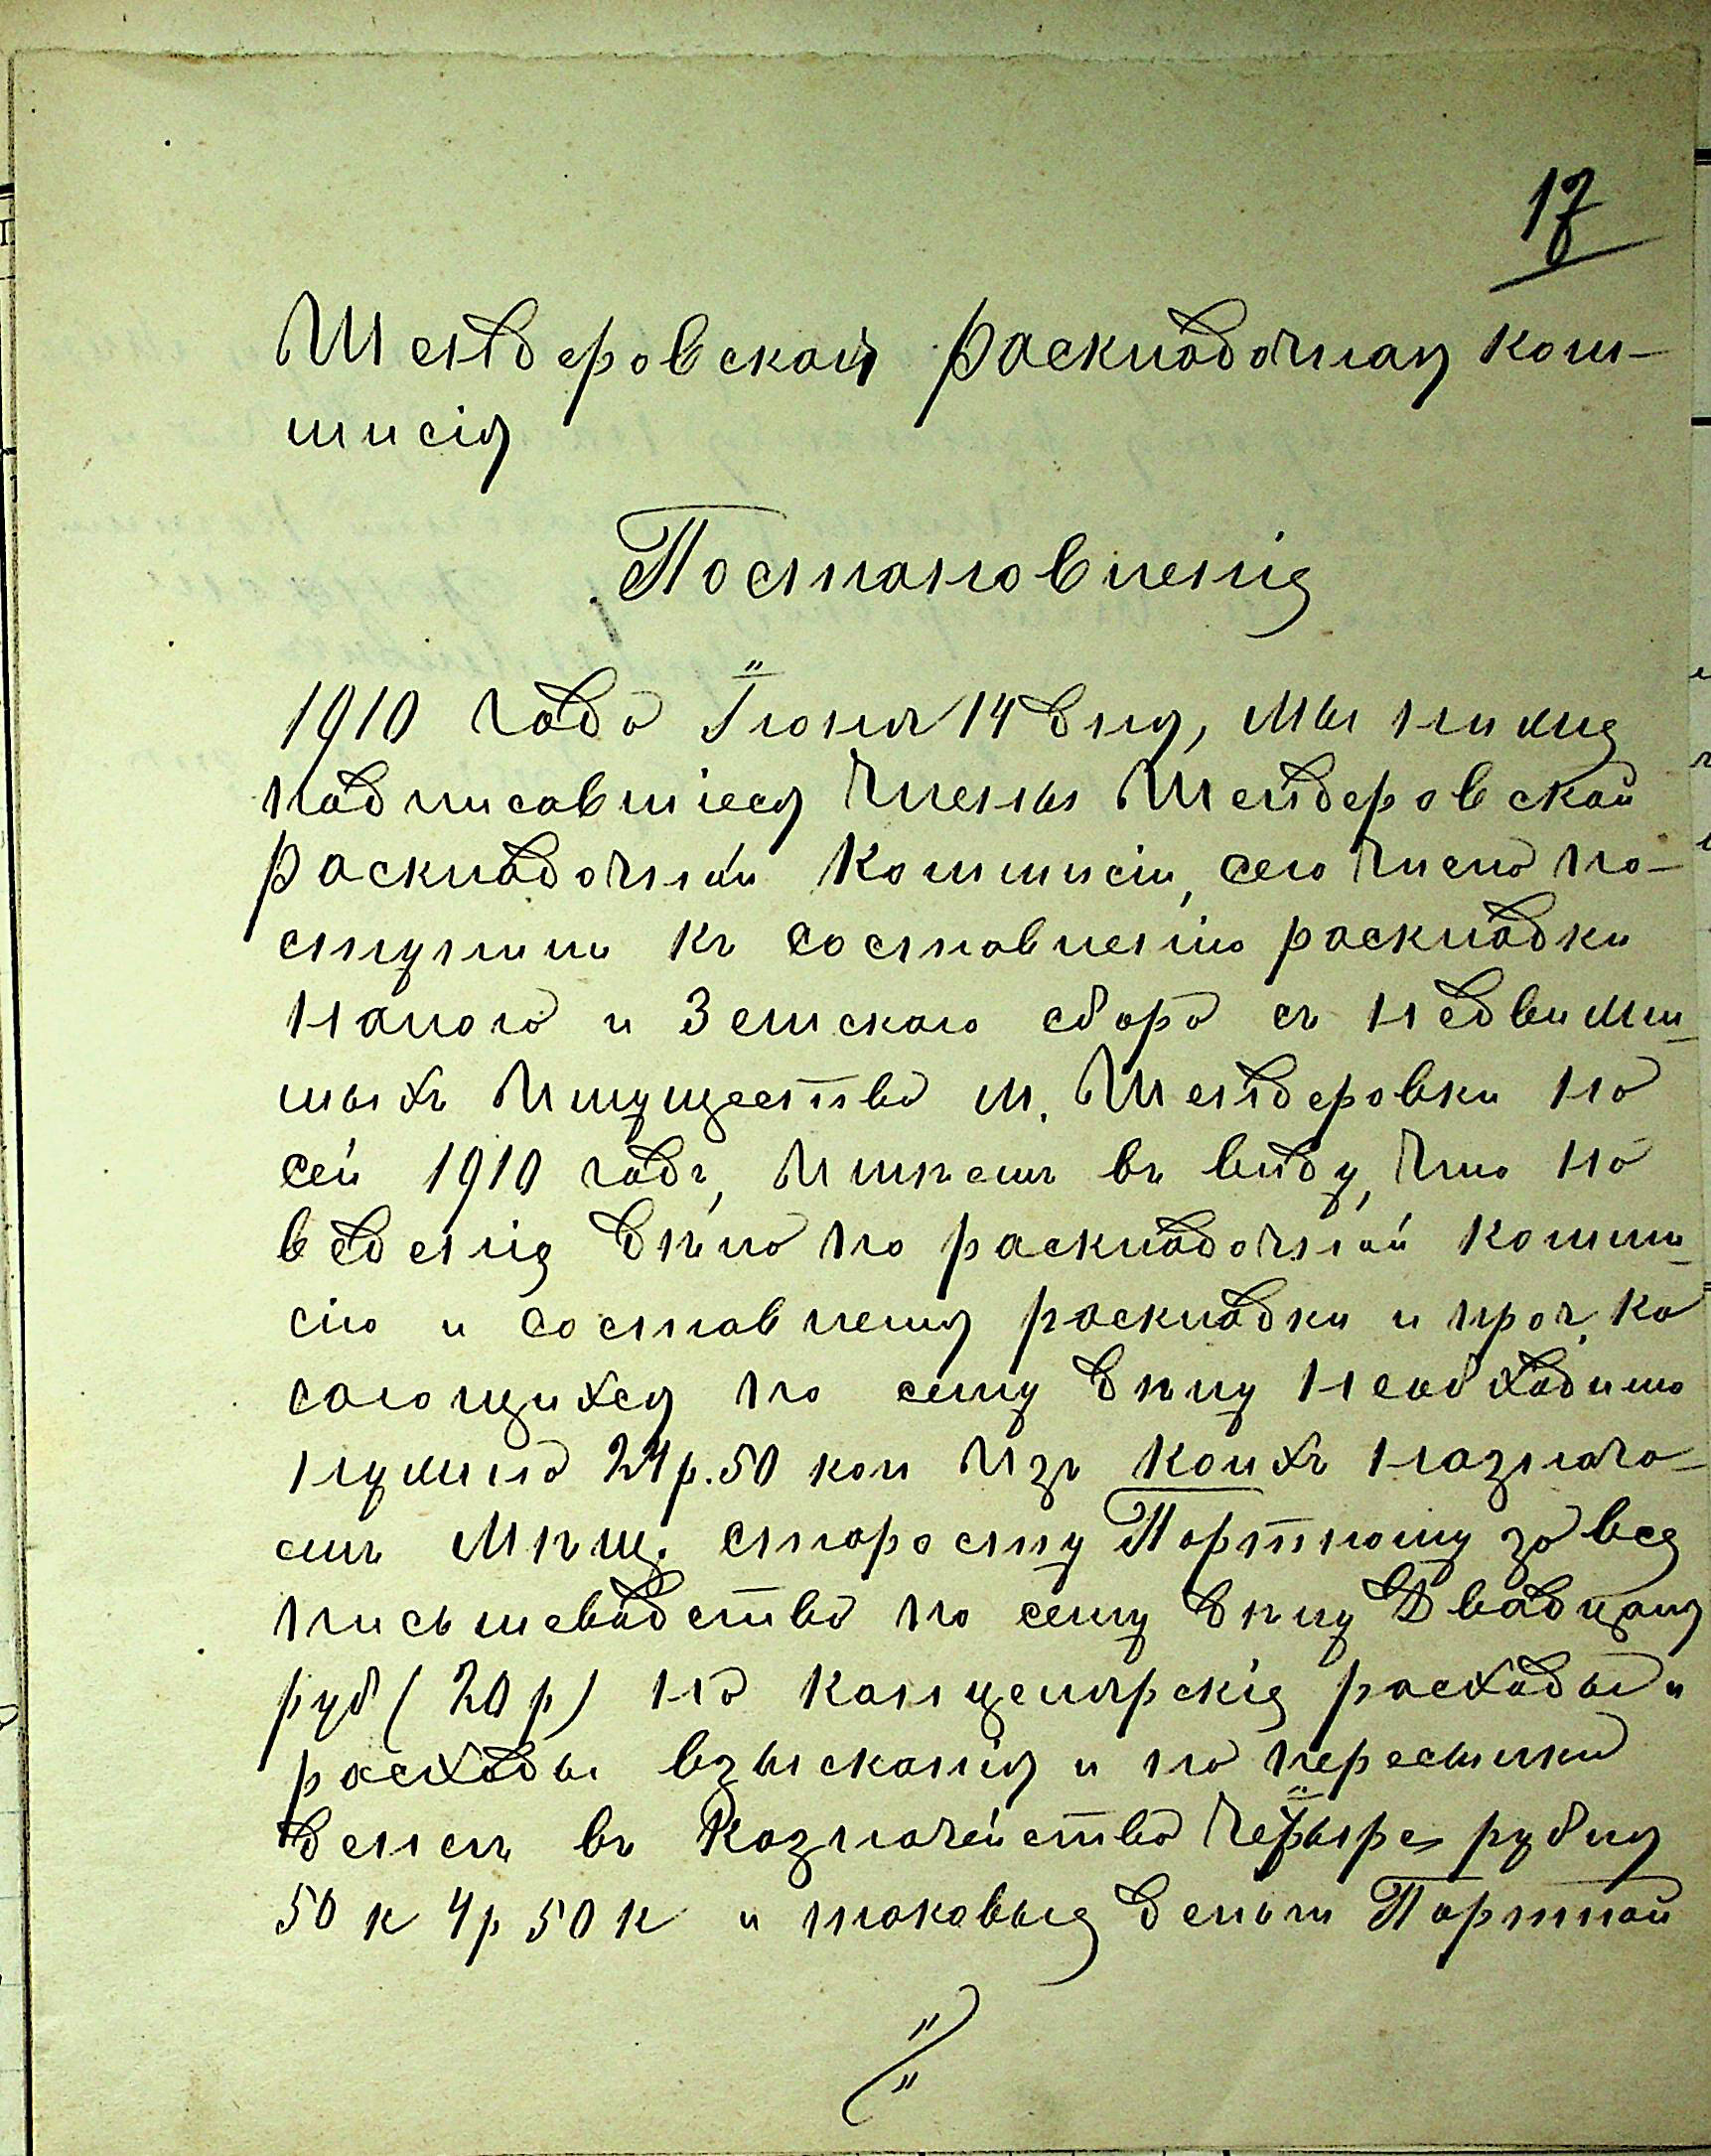 17
Шендеровская раскладочная ком-
мисія
Постановленія
1910 года Іюня 14 дня, мы ниже
подписавшіеся члены Шендеровской
раскладочной Коммисіи, сего числа по-
ступили къ составленію раскладки
Налога и Земскаго сбора съ недвижи-
мыхъ Имущества м. Шендеровки на
сей 1910 годъ, Имѣемъ въ виду, что на
веденіе дѣла по раскладочной комми-
сію и составленія раскладки и проч. ка
сающихся по сему дѣлу Необходимо
нужно 24 р. 50 коп Изъ Коихъ назнача-
емъ Мѣщ. старосту Портному за все
письмеводство по сему дѣлу Двадцать
руб (20 р) на канцелярскіе расходы и
расходы взысканія и по пересылки
денегъ въ Казначейство четыре рубля
50 к 4 р 50 к и таковые деньги Портной